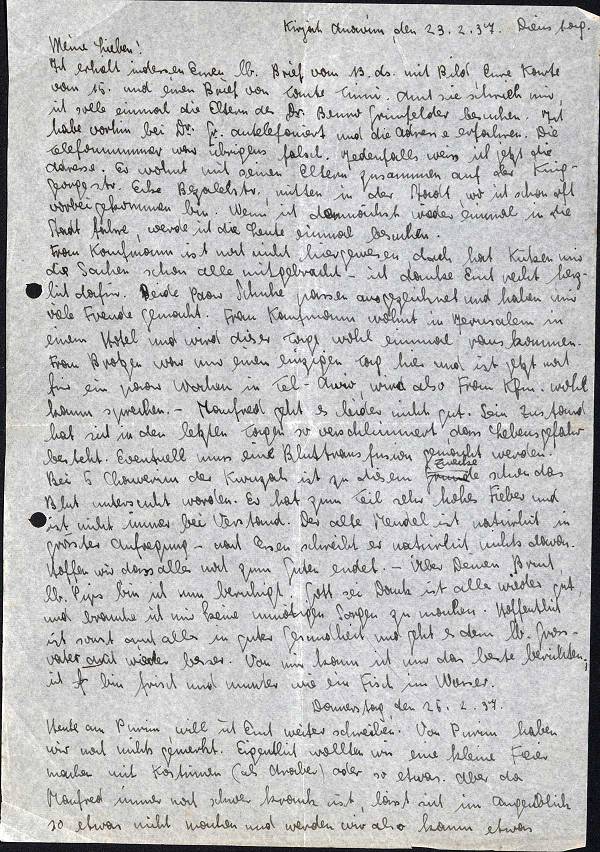 Kirjath Anavim, den 23.2.37. Dienstag.
Meine Lieben!
Ich erhielt indessen Euren lb. Brief vom 13. ds. mit Bild Eure Karte
vom 15. und einen Brief von Tante Emmi. Auch sie schrieb mir,
ich solle einmal die Eltern des Dr. Benno Grünfelder besuchen. Ich
habe vorhin bei Dr. Gr. antelefoniert und die Adresse erfahren. Die
Telefonnummer war übrigens falsch. Jedenfalls weiss ich jetzt die
Adresse. Er wohnt mit seinen Eltern zusammen auf der King-
Georgestr. Ecke Bezalelstr., mitten in der Stadt, wo ich schon oft
vorbeigekommen bin. Wenn ich demnächst wieder einmal in die
Stadt fahre, werde ich die Leute einmal besuchen.
Frau Kaufmann ist noch nicht hiergewesen doch hat mir
die Sachen schon alle mitgebracht - ich danke Euch recht herz-
lich dafür. Beide Paar Schuhe passen ausgezeichnet und haben mir
viele Freude gemacht. Frau Kaufmann wohnt in Jerusalem in
einem Hotel und wird dieser Tage wohl einmal raus kommen.
Frau Brotzen war nur einen einzigen Tag hier und ist jetzt noch
für ein paar Wochen in Tel-Aviv, wird also Frau Kfm. wohl
kaum sprechen. - Manfred geht es leider nicht gut. Sein Zustand
hat sich in den letzten Tagen so verschlimmert dass Lebensgefahr
besteht. Eventuell muss eine Bluttransfusion gemacht werden.
Bei 5 Chawerim der Kwuzah ist zu diesem Zwecke schon das
Blut untersucht worden. Er hat zum Teil sehr hohes Fieber und
ist nicht immer bei Verstand. Der alte Mendel ist natürlich in
grosster Aufregung - nach Essen schreibt er natürlich nichts davon.
Hoffen wir dass alles noch zum Guten endet. - Über Deinen Brief,
lb. Pips bin ich nun beruhigt. Gott sei Dank ist alles wieder gut
und brauche ich mir keine unnötigen Sorgen zu machen. Hoffentlich
ist sonst auch alles in guter Gesundheit und geht es dem lb. Gross-
vater auch wieder besser. Von mir kann ich nur das beste berichten,
ich bin frisch und munter wie ein Fisch im Wasser.
Donnerstag, den 25.2.37.
Heute am Purim, will ich Euch weiter schreiben. Von Purim haben
wir noch nichts gemerkt. Eigentlich wollten wir eine kleine Feier
machen mit Kostümen (als Araber) oder so etwas. Aber da
Manfred immer noch schwer krank ist, lässt sich im Augenblick
so etwas nicht machen und werden wir also kaum etwas